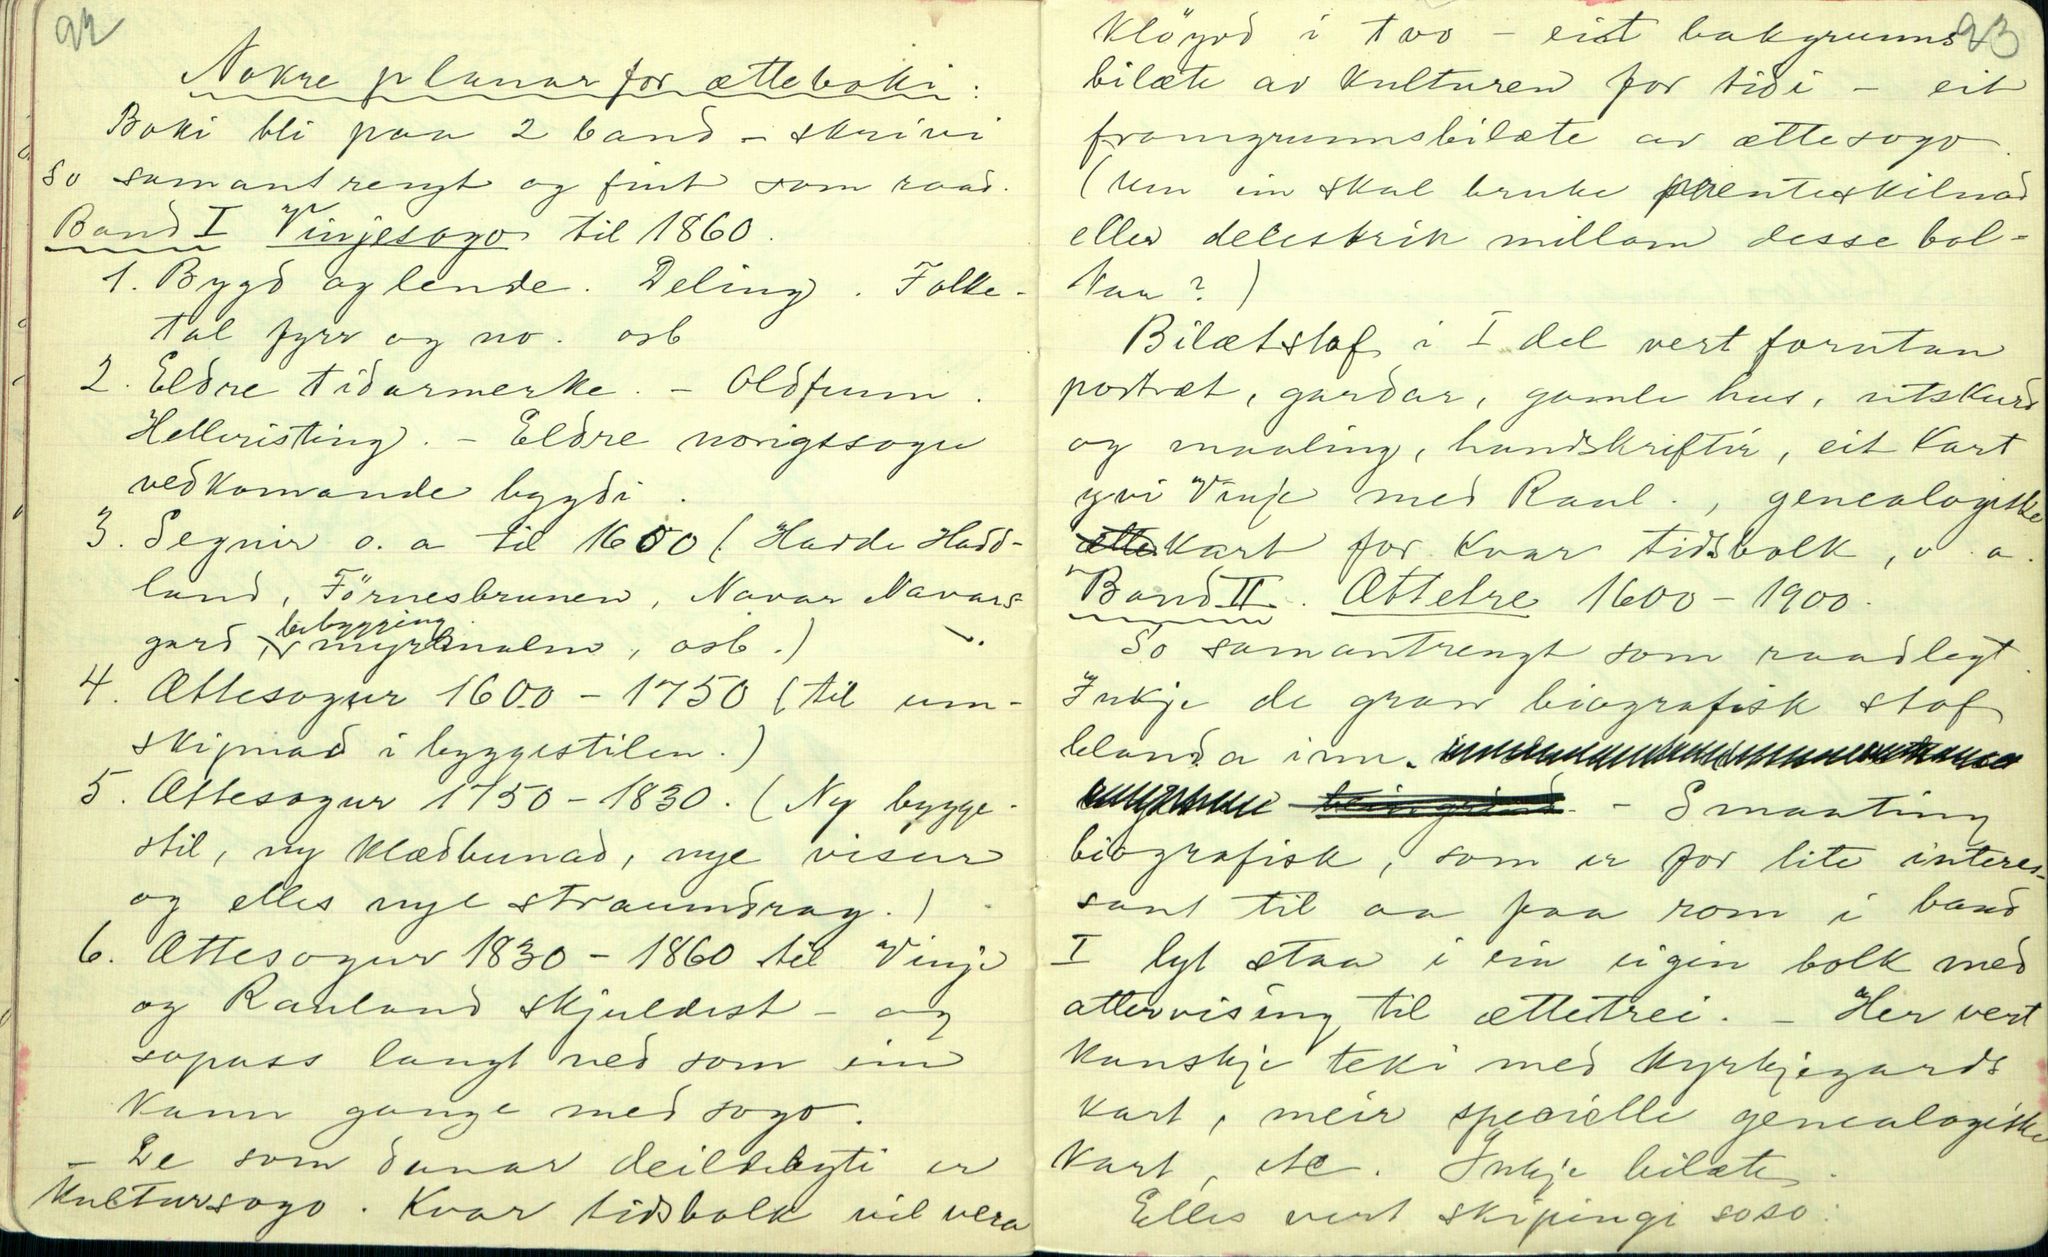 92
Nokre planar for ætteboki:
Boki bli paa 2 band - skrivi
so samantrengt og fint som raad.
Band I Vinjesogo til 1860.
1. Bygd og lende. Deling. Folke-
tal fyrr og no. osb
2. Eldre tidarmerke. - Oldfunn.
Helleristing. - Eldre norigssogu
vedkomande bygdi.
3. Segnir o. a til 1600 (Hadde Hadd-
land, Förnesbrunen, Navar Navars
bebygging
gard, myrkmalm, osb.)
4. Ættesogur 1600 - 1750 (til um-
skipnad i byggestilen.)
5. Ættesogur 1750 - 1830. (Ny bygge-
stil, ny klædbunad, nye visur
og elles nye straumdrag.)
6. Ættesogur 1830 - 1860 til Vinje
og Rauland skjuldest - og
sopass langt ned som ein
kann gange med sogo.
- De som danar deildebyti er
kultursogo. Kvar tidsbolk vil vera
93
kløyvd i two - eit bakgrunns
bilæte av kulturen for tidi - eit
framgrunnsbilæte av ættesogo.
(Um ein skal bruke prenteskilnad
eller delestrik millom desse bol-
kaa?)
Bilætstof i I del vert forutan
portræt, gardar, gamle hus, utskurd
og maaling, handskriftir, eit kart
yvi Vinje med Raul., genealogiske
ættekart for kvar tidsbolk, o. a.
Band II. Ættetre 1600 - 1900.
So samantrengt som raadlegt.
Inkje de grav biografisk stof
blanda inn.
- Smaating
biografisk, som er for lite interes-
sant til aa faa rom i band
I lyt staa i ein eigin bolk med
attervising til ættetrei. - Her vert
kanskje teki med kyrkjegards
kart, meir specielle genealogiske
kart, etc. Inkje bilæte.
Elles vert skipingi soso: